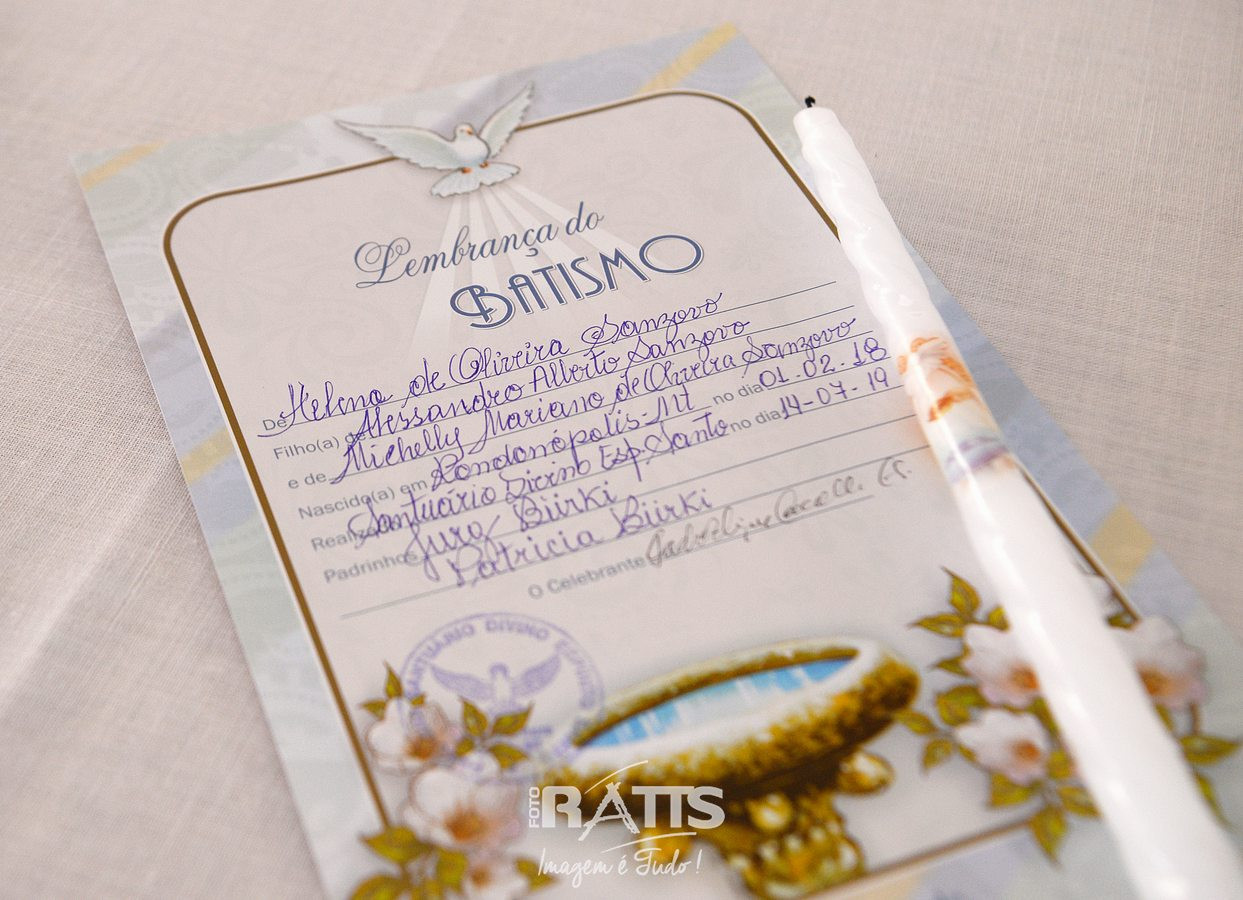 Lembrança do
BATISMO
De Helena de Oliveira Sanzovo
Filho(a) de Alessandro Alberto Sanzovo
e de Michelly Mariano de Oliveira Sanzovo
Nascido(a) em Rondonópolis-Mt no dia 01.02.18
Realizado Santuário Divino Esp. Santo no dia 14-07-19
Padrinhos Biirki
Patricia Biirki
O Celebrante
SANTUÁRIO DIVINO ESPÍRITO
FOTO RATTS
Imagem é Tudo!